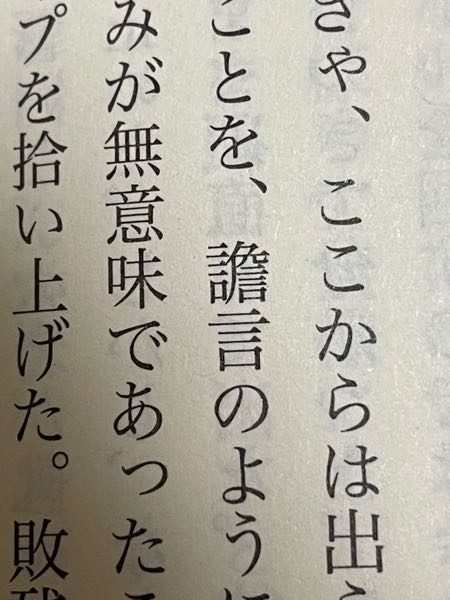 きゃ、ここからは出
ことを、譫言のように
みが無意味であった
プを拾い上げた。敗残